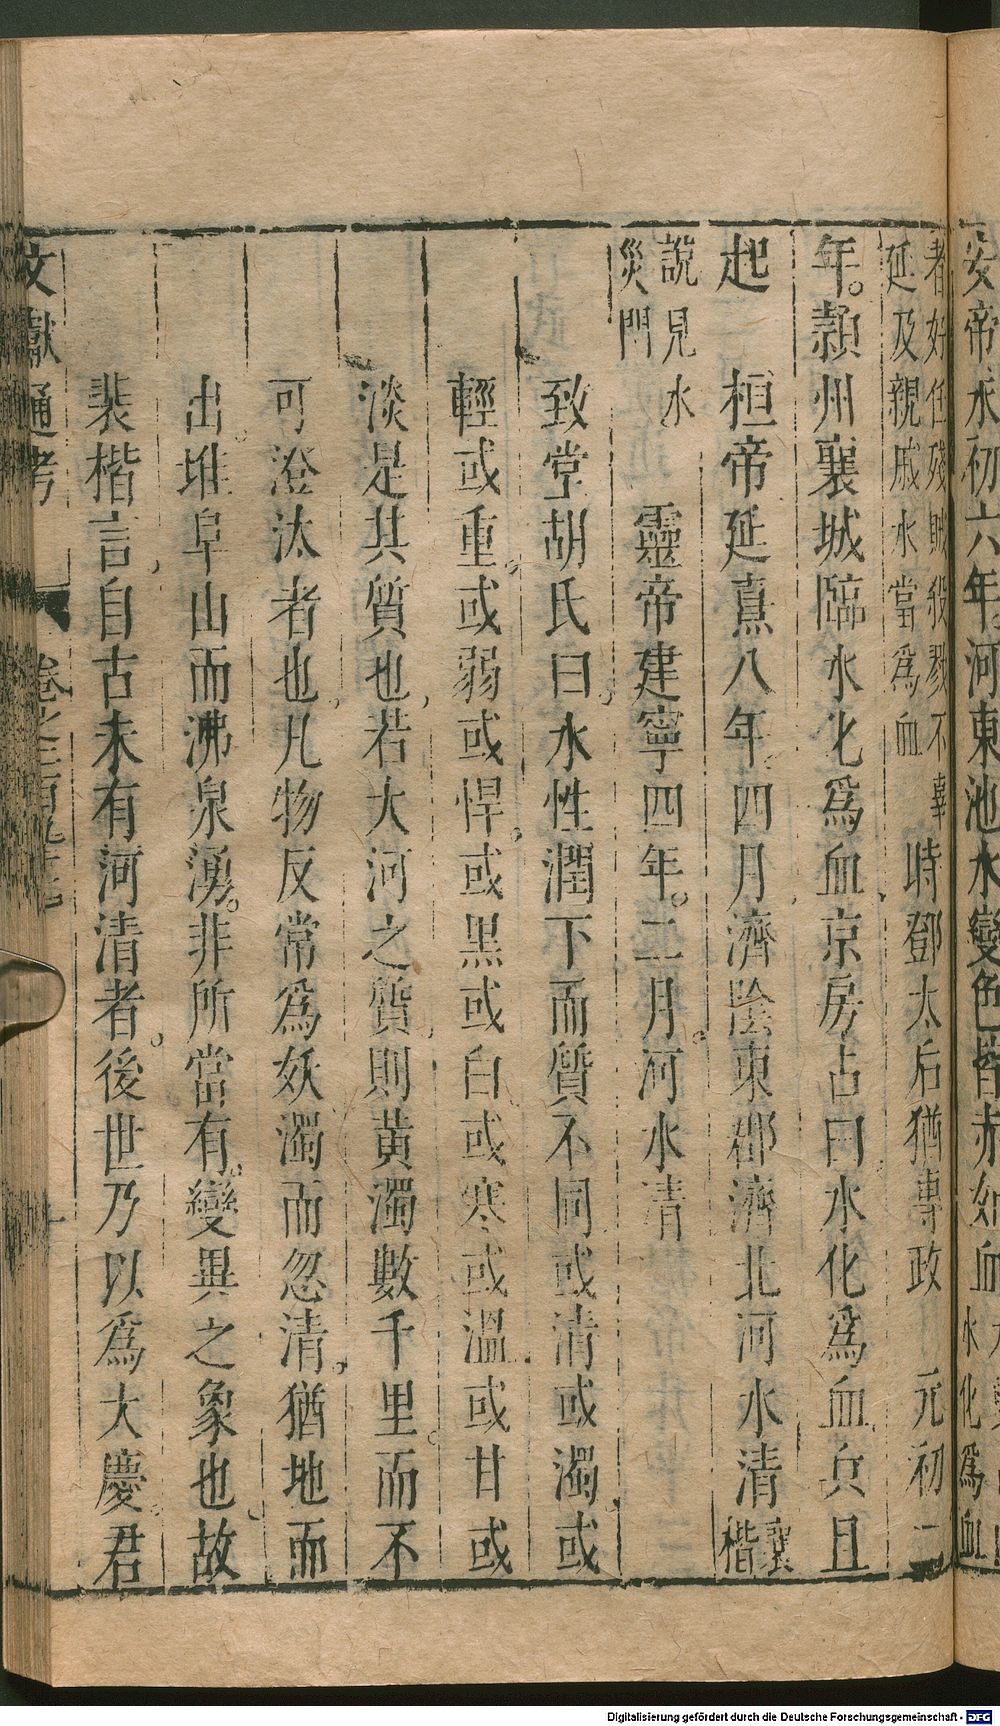 安帝永初六年。河東池水變色皆赤如血
水化爲血
者好任殘賊殺戮不辜
延及親戚水當爲血
時鄧太后猶專政 元初二
年。潁州襄城臨水化爲血京房占曰水化爲血兵且
起 桓帝延熹八年。四月濟陰東郡濟北河水清
襄
楷
說見水
災門
靈帝建寧四年。二月。河水清
致堂胡氏曰水性潤下而質不同或清或濁或
輕或重或弱或悍。或黑或白或寒或溫或甘或
淡是其質也若大河之質則黃濁數千里。而不
可澄汰者也凡物反常爲妖濁而忽清猶地而
出堆阜山而沸泉湧。非所當有。變異之象也故
裴楷言自古未有河清者。後世乃以爲大慶君
文獻通考
卷之二百九十七
十
Digitalisierung gefördert durch die Deutsche Forschungsgemeinschaft - DFG